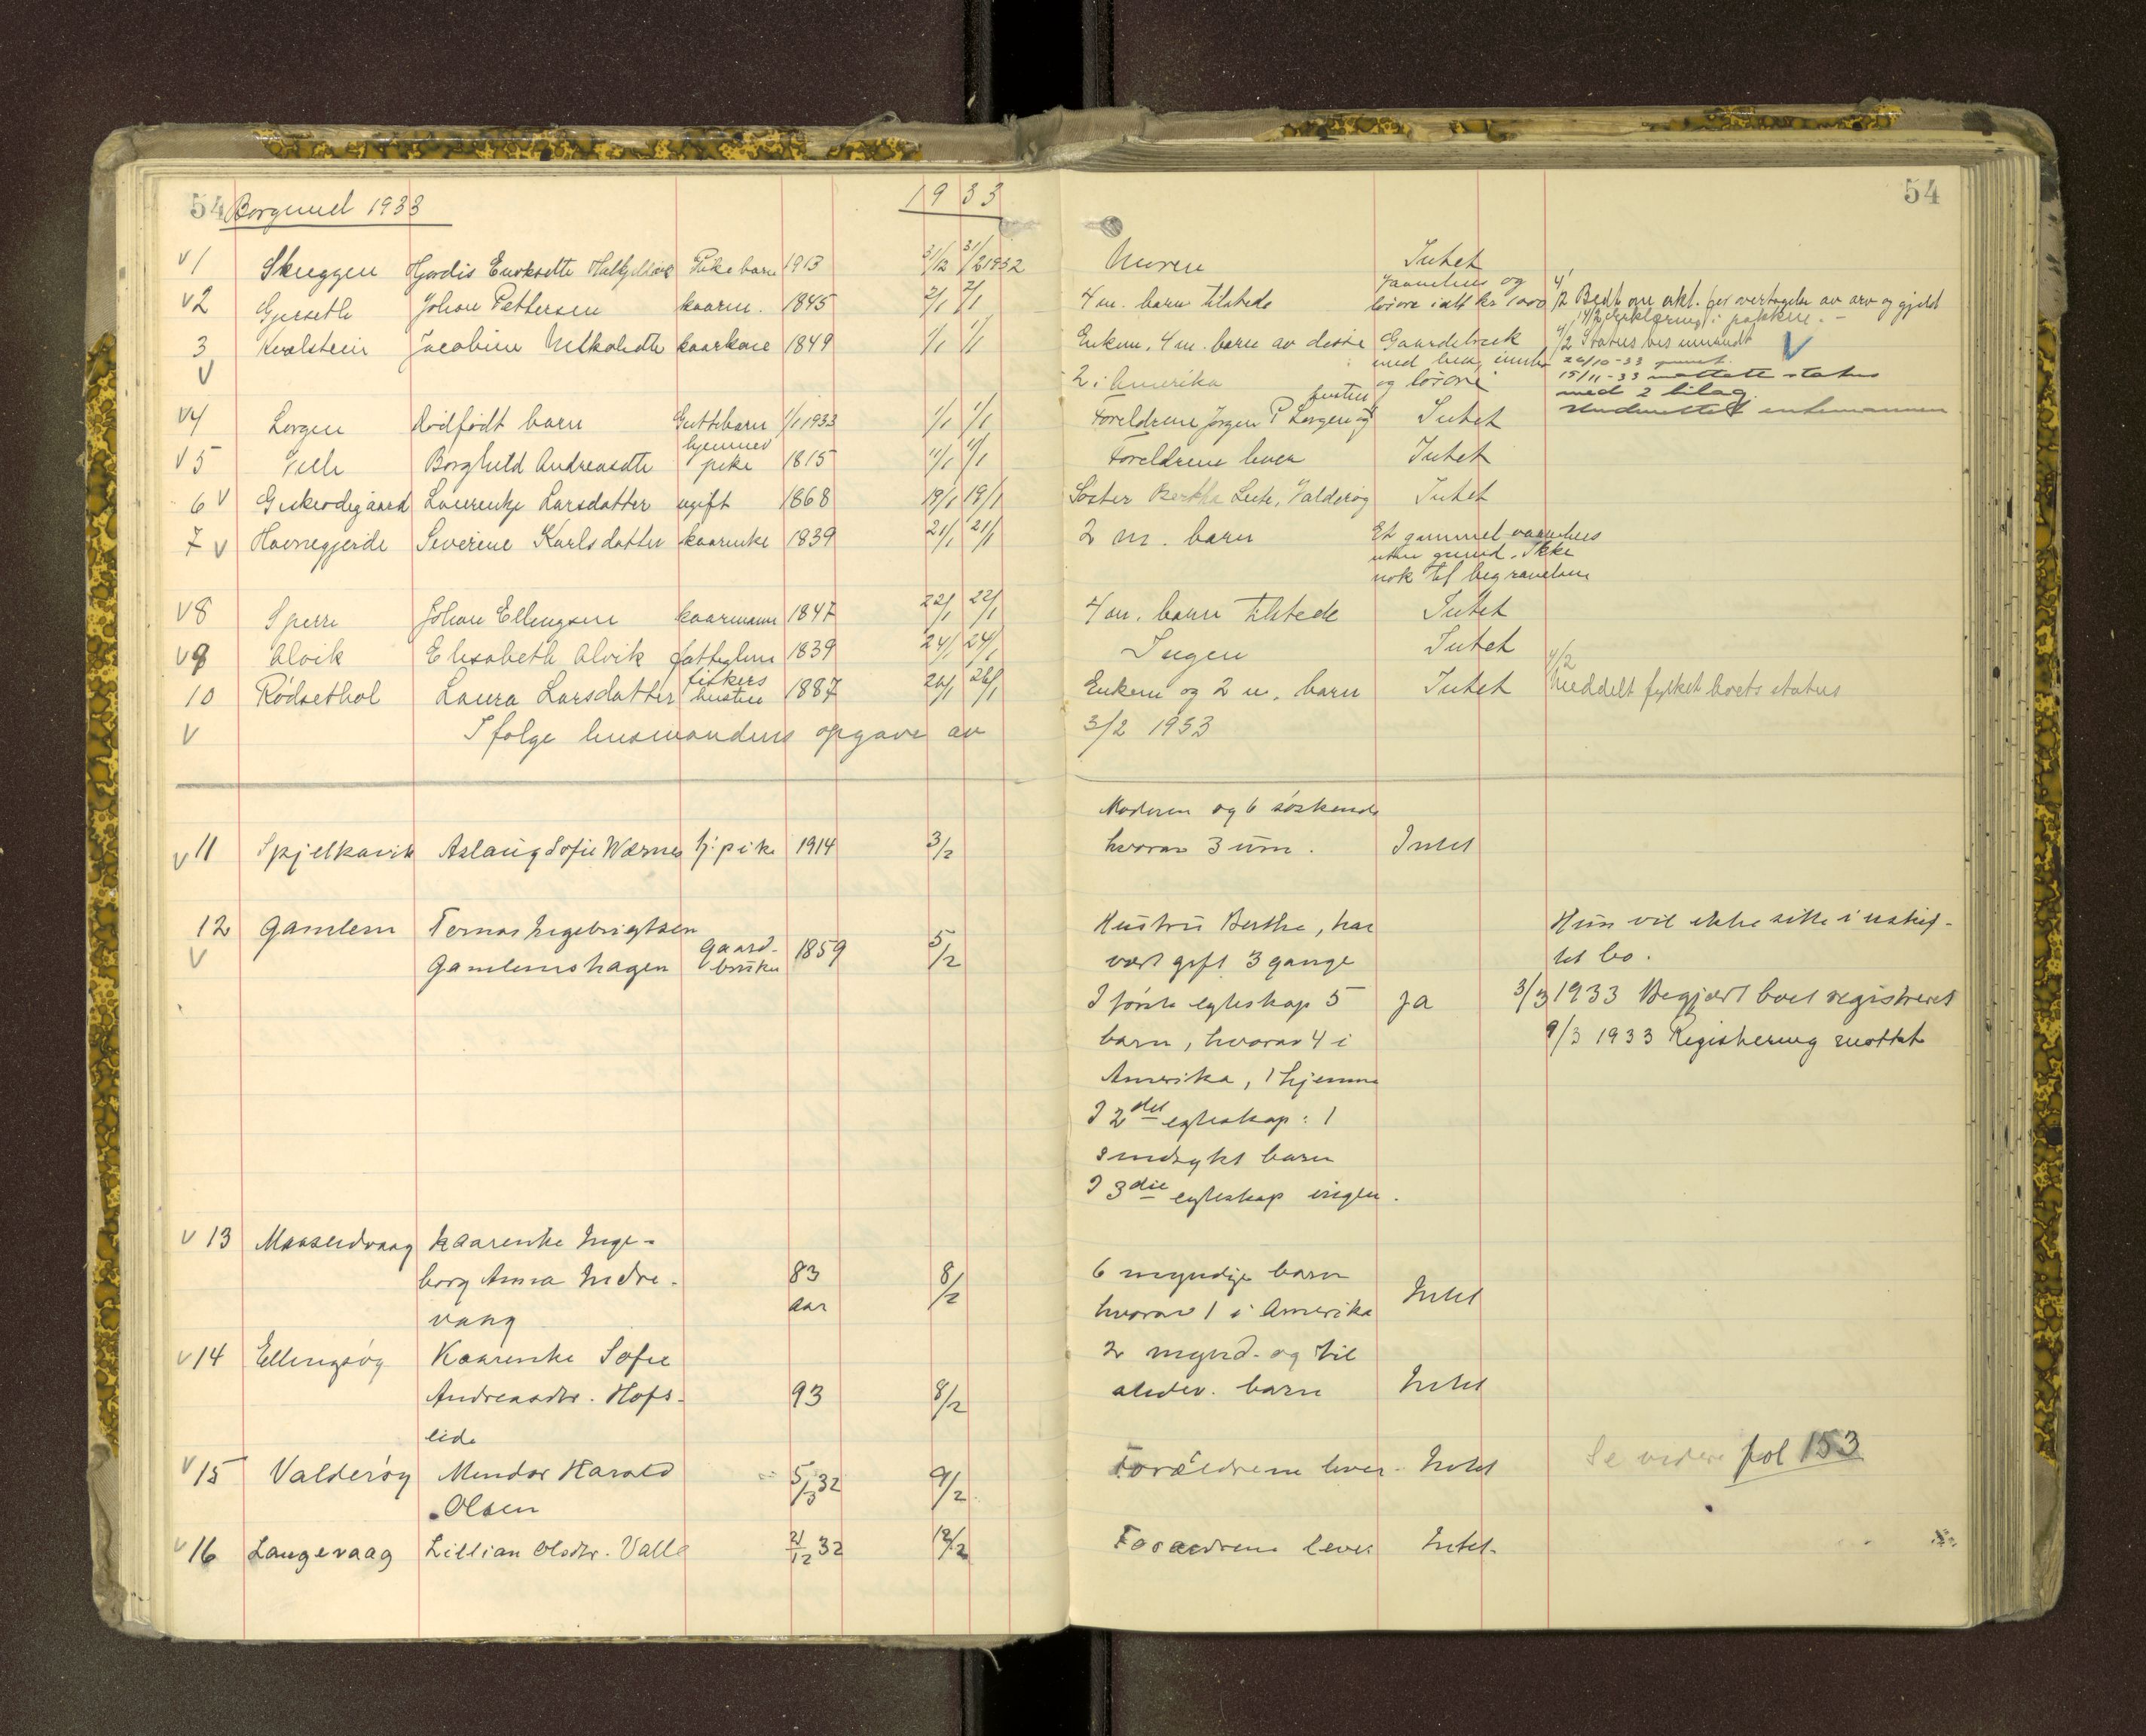 54 Borgund 1933 1933 54
v 1 Skuggen Hjørdis Pikebarn 1913 31/12 31/12 1932 Moren Intet
v 2 Gjerseth Johan Pettersen kaarm. 1845 2/1 2/1 4 m. barn tilstede Vaanehus og løsøre ialt kr 1000 4/2 Bedt om erkl. for overtagelse av arv og gjeld
14/2 Erklæring i pakken. -
3 Kvalsteir Jacobine kaarkone 1849 1/1 1/1 Enkem. 4 m. barn av disse Gaardsbruk 4/2 Status bes innsendt V
v 2 i Amerika med hus, innbo og løsøre 24/10-33
15/11-33 mottatt status
med 2 bilag.
Underrettet enkemannen
v 4 Lorgen Dødfødt barn Guttebarn 1/1 1933 1/1 1/1 Foreldrene Jørgen P Lorgen og hustru Intet
v 5 Borghild Andreasdtr hjemmev pike 1815 11/1 11/1 Foreldrene lever Intet
6 v Giskeødegaard Laurentze Larsdatter ugift 1868 19/1 19/1 Søster Bertha Valderøy Intet
7 v Havnegjerde Severine Karlsdatter kaarenke 1839 21/1 21/1 2 m. barn Et gammel vaanehus
uten grund. Ikke
nok til begravelsen
v 8 Sperre Johan Ellingsen kaarmann 1847 22/1 22/1 4 m. barn tilstede Intet
v 9 Alvik Elisabeth Alvik fattiglem 1839 24/1 24/1 Ingen Intet
10 Rødsethol Laura Larsdatter fiskers hustru 1887 26/1 26/1 Enkem og 2 u. barn Intet 4/2 Meddelt fylket boets status
v Ifølge husmandens opgave av 3/2 1933
Moderen og 6 søskende
v 11 Spjelkavik Aslaug Sofie Wærnes hj. pike 1914 3/2 hvorav 3 um. Intet
12 Gamlem Tomas Ingebrigtsen Hustru Berthe, har Hun vil ikke sitte i uskif-
v Gamlemshagen Gaard-bruker 1859 5/2 vært gift 3 gange tet bo.
I første egteskap 5 Ja 3/3 1933 Begjært boet registreret
barn, hvorav 4 i 9/3 1933 Registrering mottatt
Amerika, 1 hjemme
I 2det egteskap: 1
sindsykt barn
I 3die egteskap ingen.
v 13 Mauseidvaag Kaarenke Inge-
borg Anna Indre- 83 8/2 6 myndige barn
vaag aar hvorav 1 i Amerika Intet
v 14 Ellingsøy Kaarenke Sofie 2 mynd. og til
Andreasdtr. Hofs- 93 8/2 barn Intet
eid
v 15 Valderøy Mindor Harald 5/3 32 9/2 Forældrene lever. Intet Se videre fol 153
Olsen
v 16 Langevaag Lillian Olsdtr. Valle 21/12 32 12/2 Forældrene lever Intet.